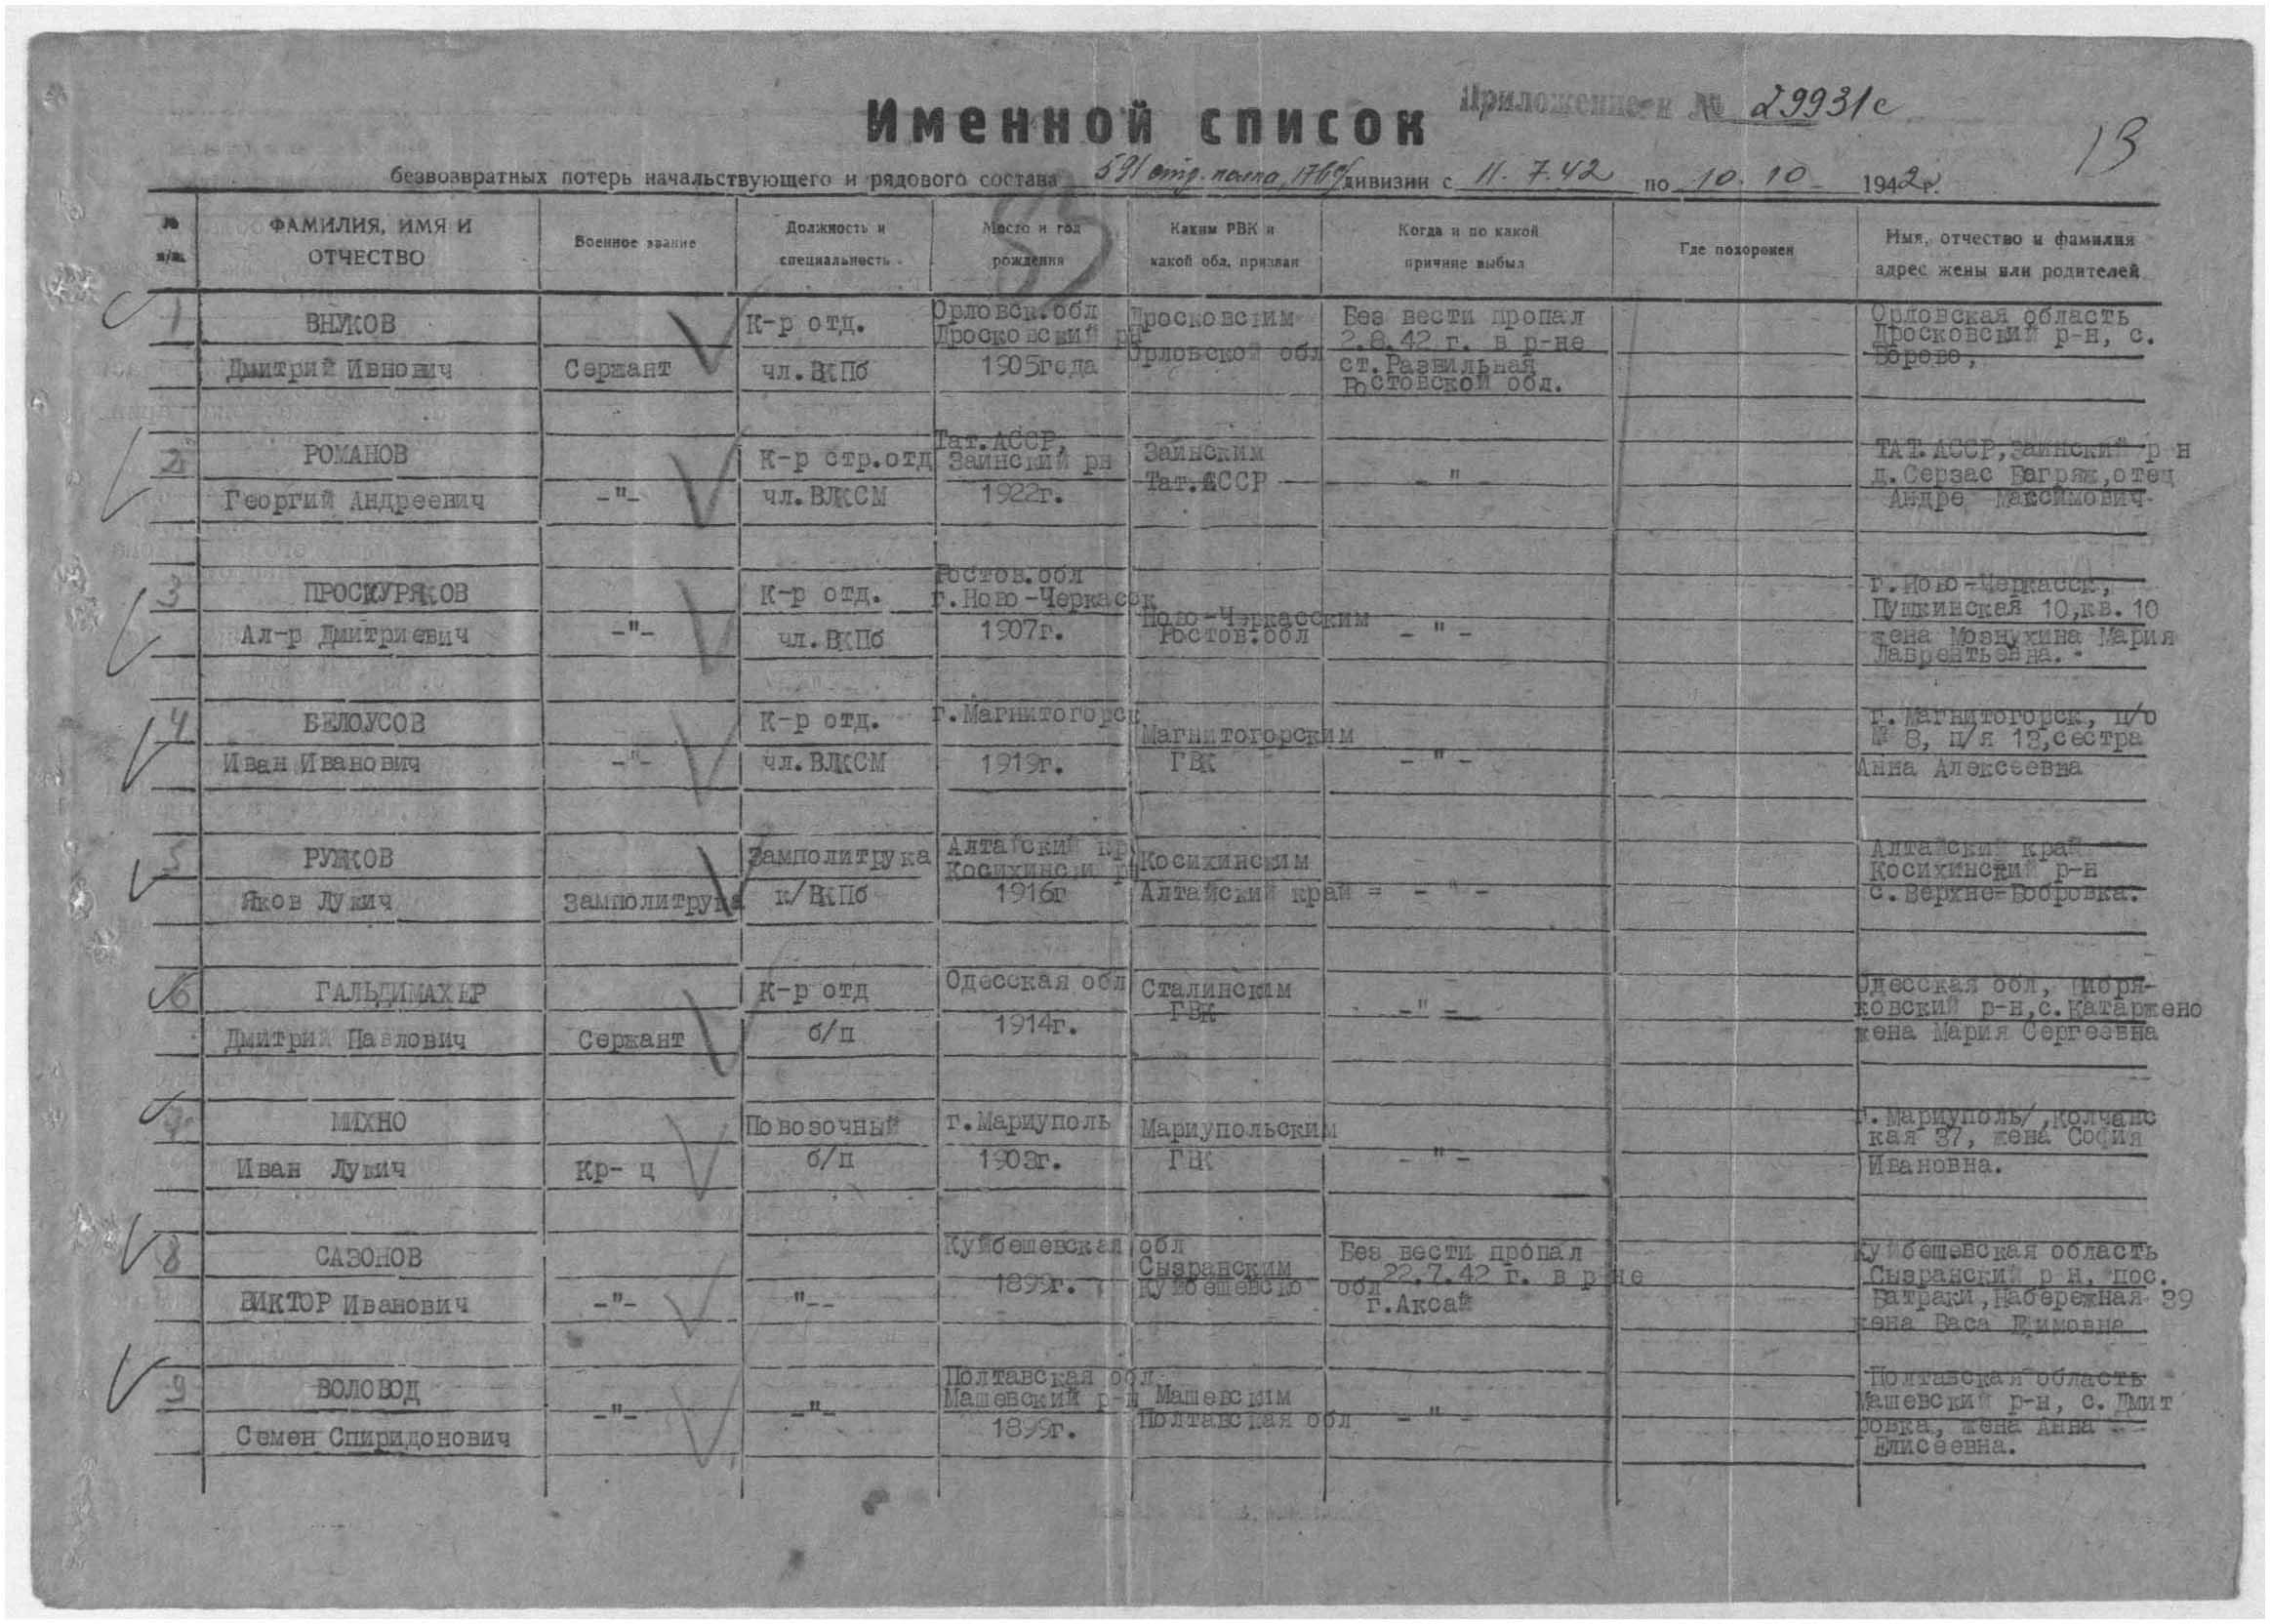 Приложение к № 29931с
Именной список
13
безвозвратных потерь начальствующего и рядового состава 591 дивизии с 11.7.42 по 10.10 1942 г.
№ п/п
ФАМИЛИЯ, ИМЯ И
ОТЧЕСТВО
Военное звание
Должность и
специальность
Место и год
рождения
Каким РВК и
какой обл. призван
Когда и по какой
причине выбыл
Где похоронен
Имя, отчество и фамилия
адрес жены или родителей
1
ВНУКОВ
Дмитрий Ивнович
Сержант
К-р отд.
чл.ВКПб
Орловск.обл
Дросковский рн
1905года
Дросковским
Орловской обл
Без вести пропал
2.8.42 г. в р-не
ст.Развильная
Ростовской обл.
Орловская область
Дросковский р-н, с.
Борово,
2
РОМАНОВ
Георгий Андреевич
-"-
К-р стр.отд
чл.ВЛКСМ
Тат.АССР,
Заинский рн
1922г.
Заинским
Тат.АССР
- " -
ТАТ.АССР,Заинский р н
д.Серзас Багряж,отец
Андре Максимович
3
ПРОСКУРЯКОВ
Ал-р Дмитриевич
-"-
К-р отд.
чл.ВКПб
Ростов.обл
г.Ново-Черкасск
1907г.
Ново-Черкасским
Ростов.обл
- " -
г.Ново-Черкасск,
Пушкинская 10,кв. 10
жена Мозжухина Мария
Лаврентьевна.
4
БЕЛОУСОВ
Иван Иванович
-"-
К-р отд.
чл.ВЛКСМ
г.Магнитогорск
1919г.
Магнитогорским
ГВК
- " -
г.Магнитогорск, п/о
№ 8, п/я 13,сестра
Анна Алексеевна
5
РУЖКОВ
Яков Лукич
Замполитрука
Замполитрука
к/ВКПб
Алтайский кр
Косихински рн
1916г
Косихинским
Алтайский край =
- " -
Алтайский край
Косихинский р-н
с.Верхне-Бобровка.
6
ГАЛЬДИМАХЕР
Дмитрий Павлович
Сержант
К-р отд
б/п
Одесская обл
1914г.
Сталинским
ГВК
-"-
Одесская обл, Цибря-
ковский р-н,с.Катаржено
жена Мария Сергеевна
7
МИХНО
Иван Лукич
Кр- ц
Повозочный
б/п
г.Мариуполь
1903г.
Мариупольским
ГВК
- " -
г.Мариуполь/,Колчанс
кая 37, жена София
Ивановна.
8
САЗОНОВ
ВИКТОР Иванович
-"-
"--
Куйбешевская обл
1899г.
Сызранским
Куйбешевско обл
Без вести пропал
22.7.42 г. в р не
г.Аксай
Куйбешевская область
Сызранский р н, пос.
Батраки,Набережная 39
жена Васа Ефимовна
9
ВОЛОВОД
Семен Спиридонович
-"-
-"-
Полтавская обл.
Машевский р-н
1899г.
Машевским
Полтавская обл
- " -
Полтавская область
Машевский р-н, с.Дмит
ровка, жена Анна
Елисеевна.